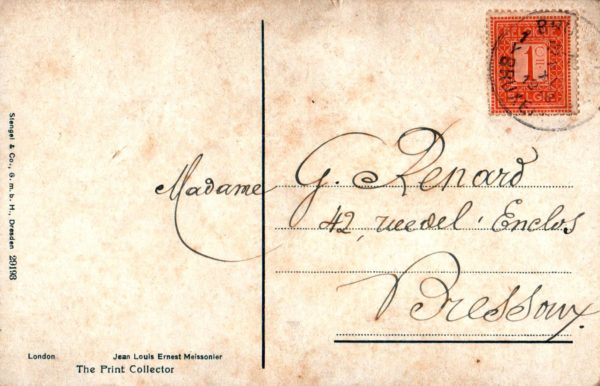 1
BRUX
Madame G. Renard
42, rue del' Enclos
Bressoux
Stengel & Co., G. m. b. H., Dresden 29193
London
Jean Louis Ernest Meissonier
The Print Collector